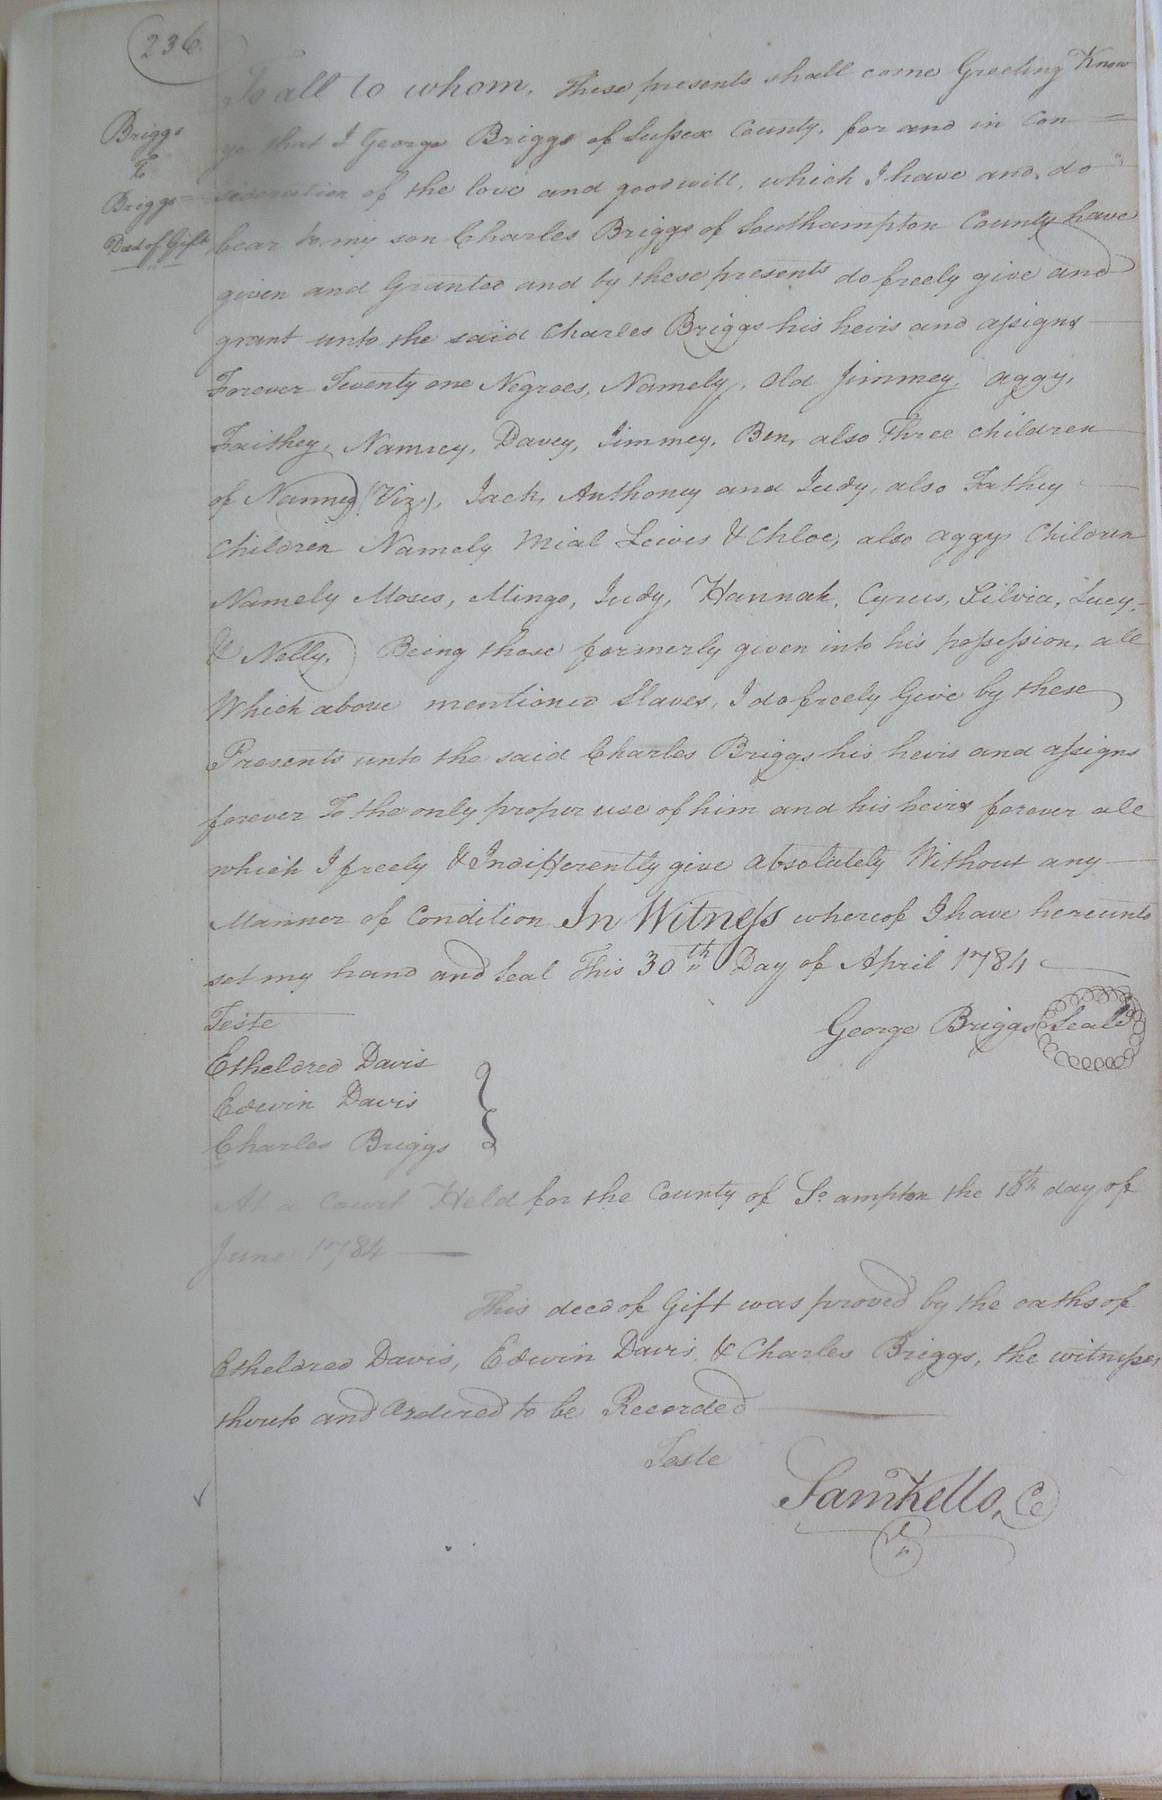 236
Briggs
To
Briggs
Deed of Gift
To all to whom, These presents shall come Greeting Know
ye that I George Briggs of Sussex County, for and in Con=
sideration of the love and good will, which I have and do
bear to my son Charles Briggs of Southampton County have
given and Granted and by these presents do freely give and
grant unto the said Charles Briggs his heirs and assigns
Forever Twenty one Negroes, Namely, Old Jimmey, aggy,
Faithey, Nanney, Davey, Jimmey, Ben, also Three children
of Nanney (Viz), Jack, Anthoney and Judy, also Fathey
Children Namely Mial Lewes & Chloe, also aggys Children
Namely Moses, Mingo, Judy, Hannah, Cyrus, Silvia, Lucy,
& Nelly. Being those formerly given into his possession, all
Which above mentioned Slaves, I do freely Give by these
Presents unto the said Charles Briggs his heirs and assigns
forever To the only proper use of him and his heirs forever all
which I freely & Indifferently give absolutely Without any
Manner of Condition In Witness whereof I have hereunto
set my hand and Seal This 30th Day of April 1784
Teste
George Briggs Seal
Etheldred Davis
Edwin Davis
Charles Briggs
At a Court Held for the County of So ampton the 10th day of
June 1784
This deed of Gift was proved by the oaths of
Etheldred Davis, Edwin Davis & Charles Briggs, the witnesses
thereto and Ordered to be Recorded
Teste
Saml Kello, Ce